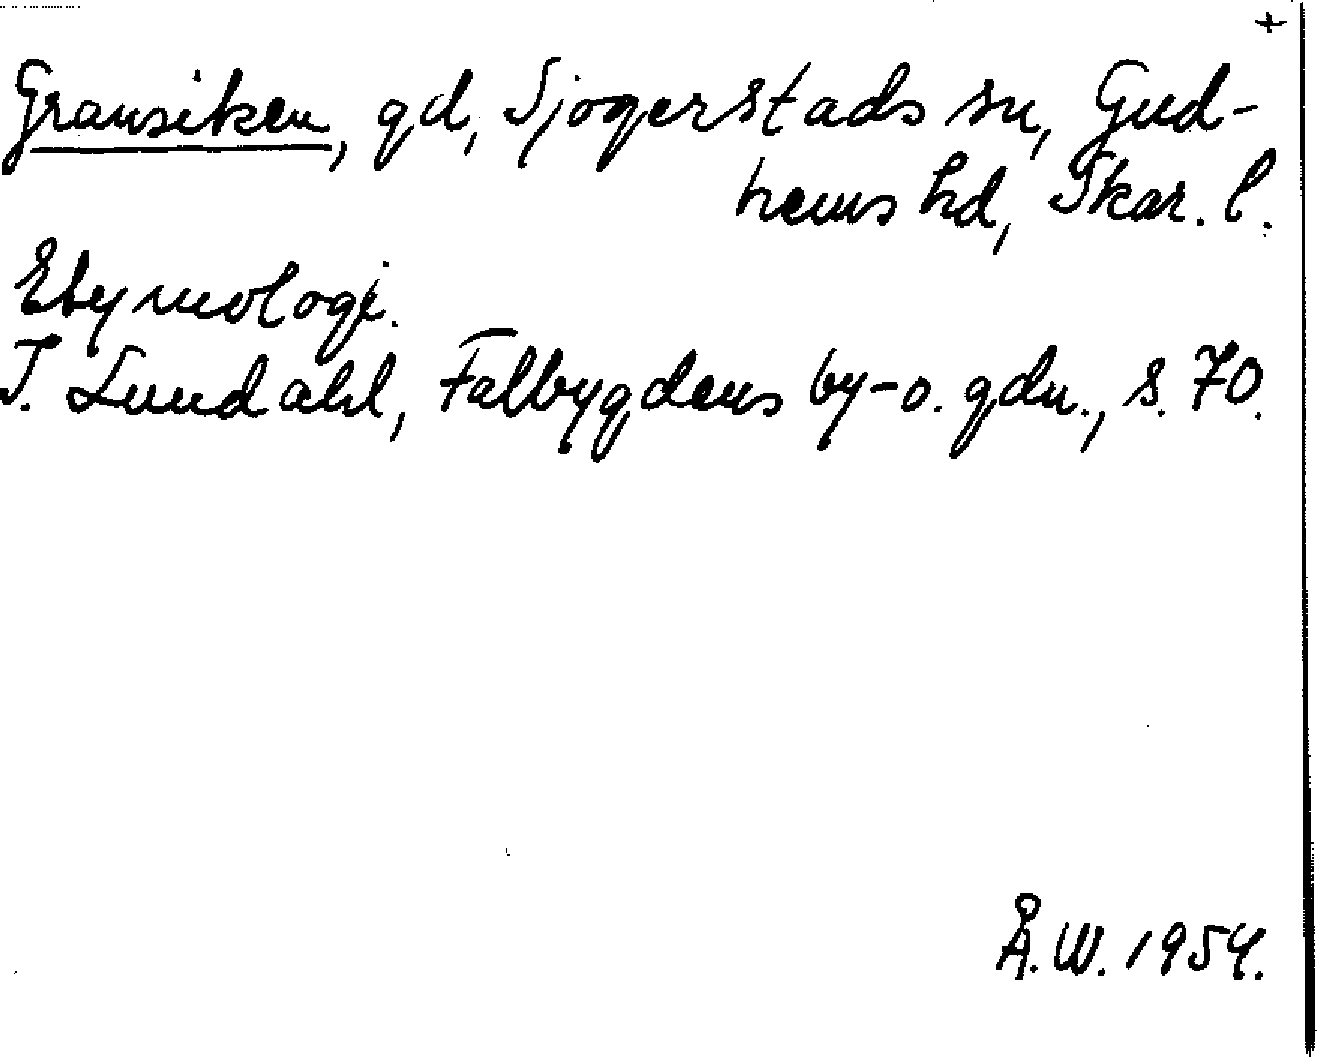 +
Gransiken, gd, Sjogerstads sn, Gud-
hems hd, Skar. l.
Etymologi.
I. Lundahl, Falbygdens by- o. gdn., s. 70.
Å.W. 1954.